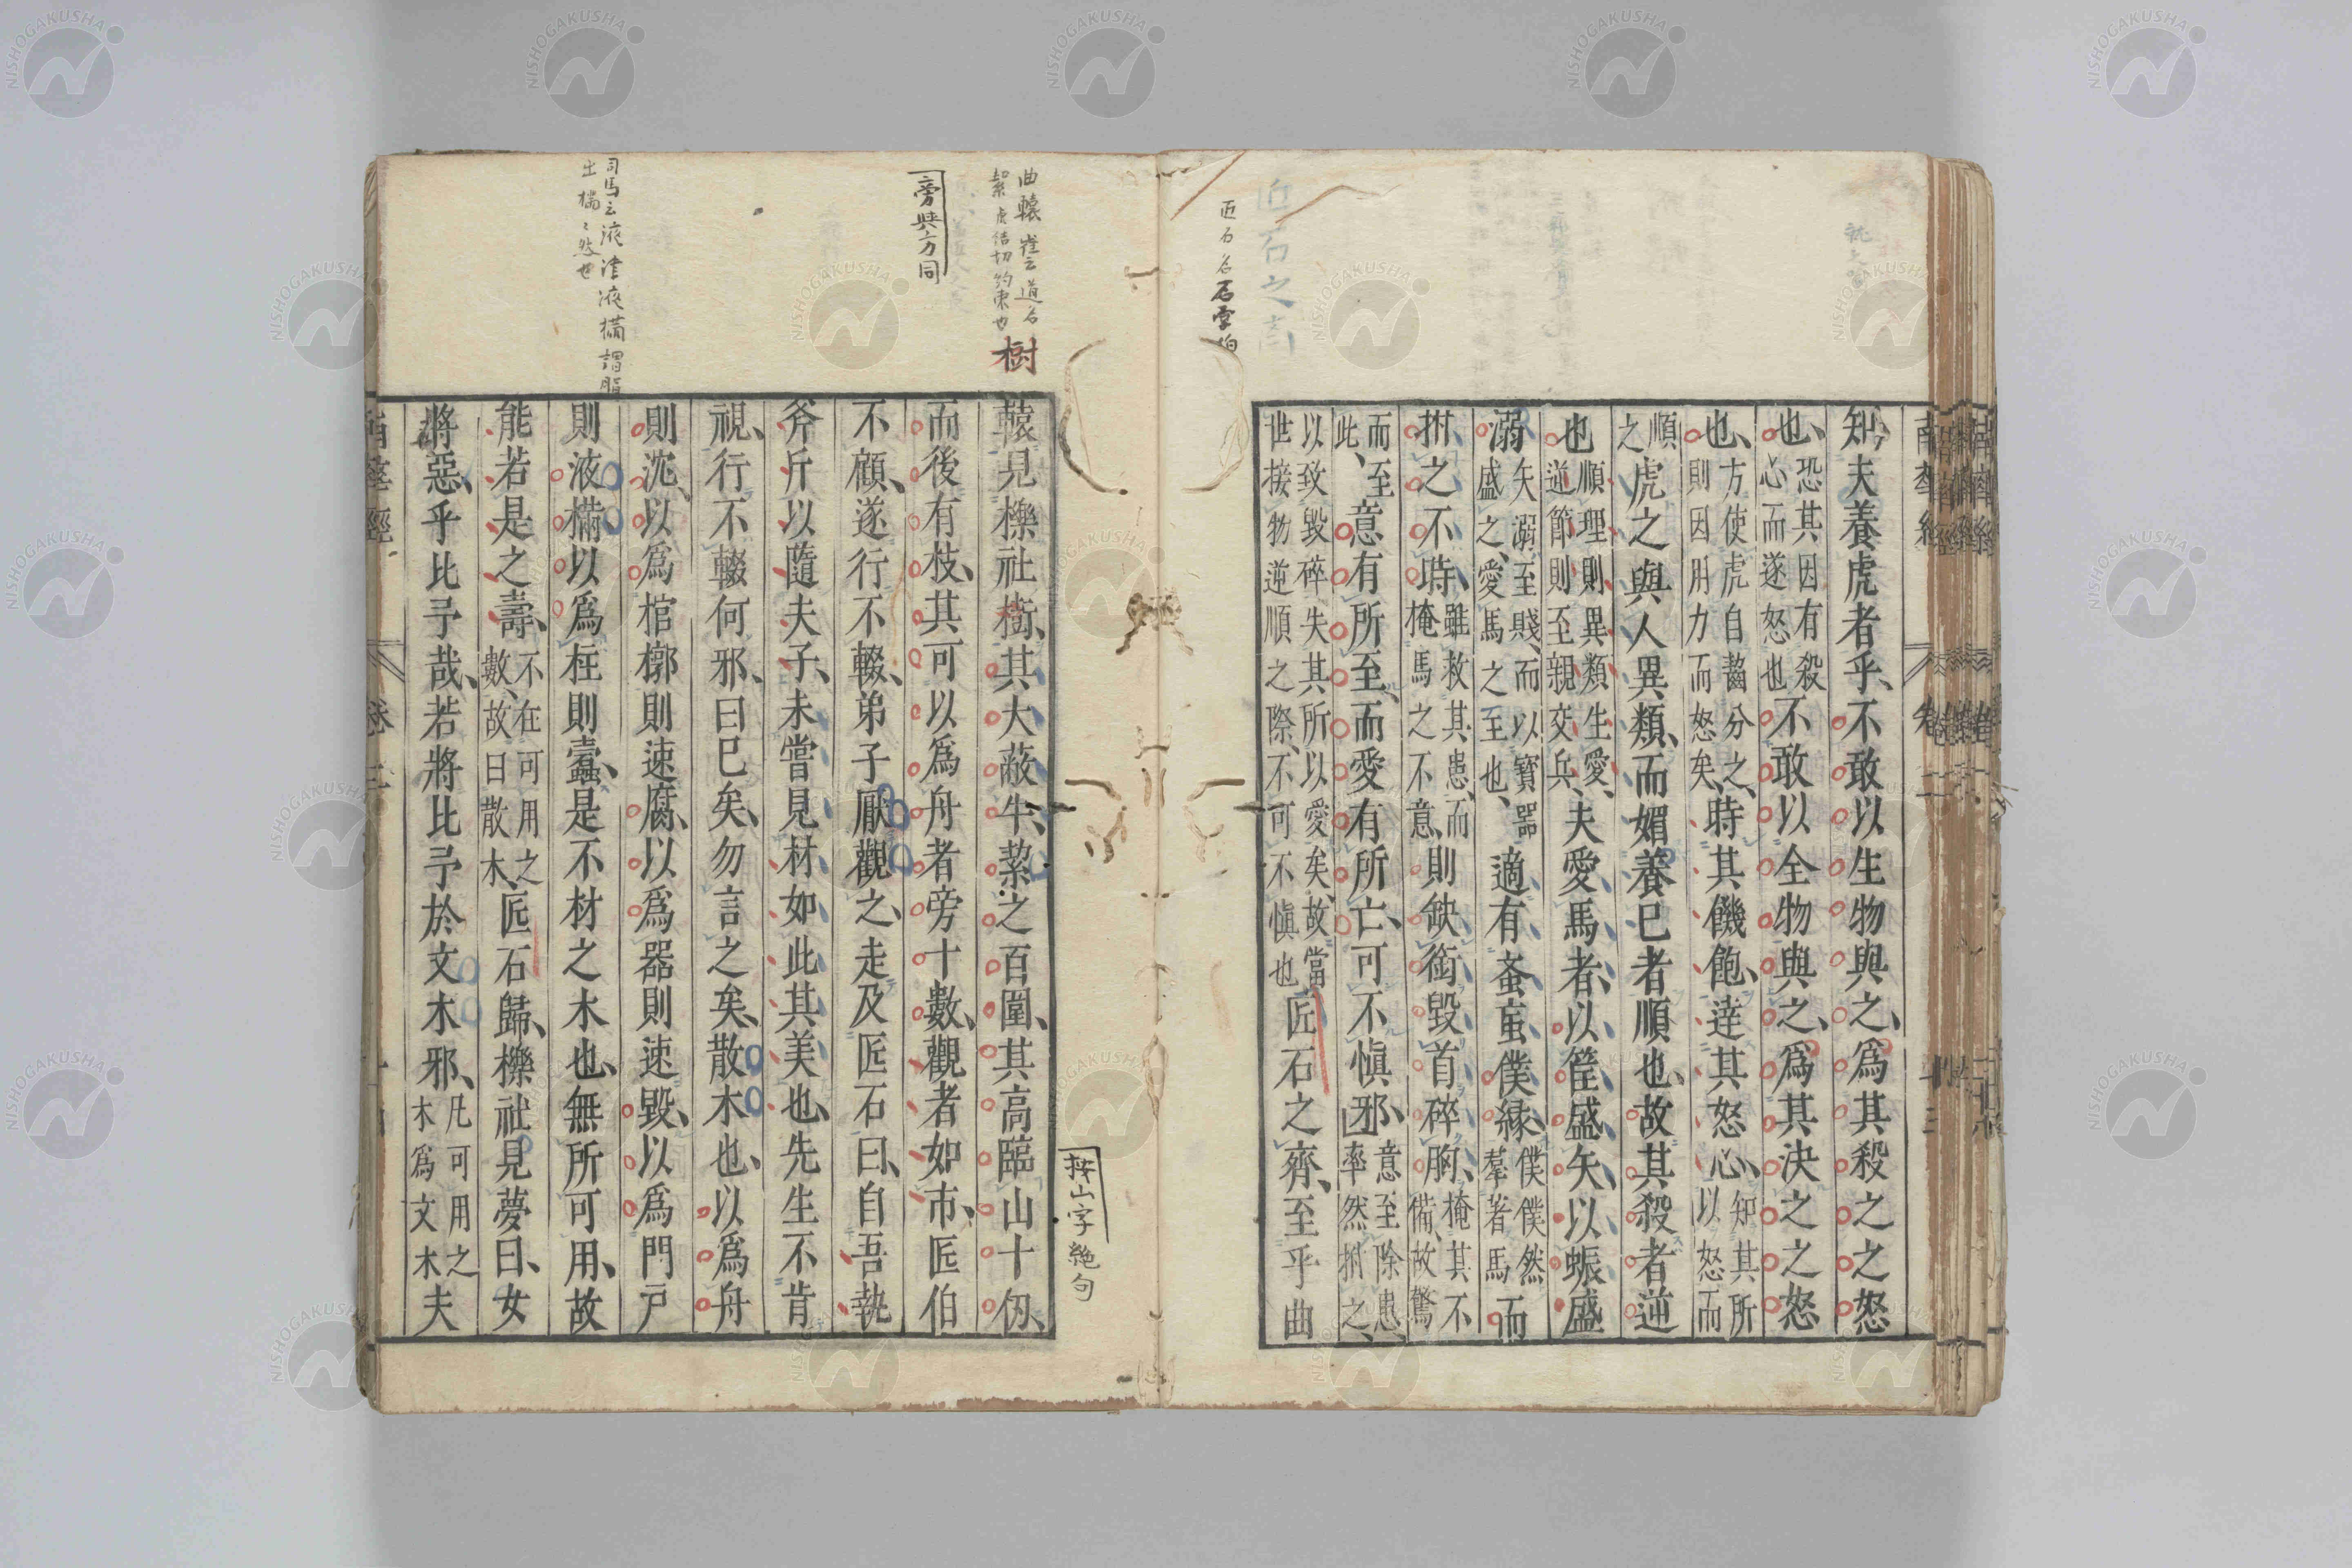 知、夫養虎者乎、不敢以生物與之、爲其殺之之怒
也、恐其因有殺心而遂怒也不敢以全物與之、爲其決之之怒
也、方使虎自齧分之、則因用力而怒矣、時其饑飽、達其怒心、知其所以怒而
順之虎之與人異類、而媚養已者順也、故其殺者逆
也順理則異類生愛、逆節則至親交兵、夫愛馬者、以筐盛矢、以蜄盛
溺矢溺至賤、而以寶器盛之、愛馬之至也、適有蚤䖟僕緣、僕僕然羣著馬而
拊之不時、雖救其患、而掩馬之不意、則缺銜毀首碎胸、掩其不備、故驚
而至此、意有所至、而愛有所亡、可不慎邪、意至除患、率然拊之、
以致毀碎失其所以愛矣、故當世接物逆順之際、不可不慎也匠石之齊、至乎曲
轅見櫟社樹、其大蔽牛、絜之百圍、其高臨山十仞、
而後有枝、其可以爲舟者旁十數、觀者如市、匠伯
不顧、遂行不輟、弟子厭觀之、走及匠石曰、自吾執
斧斤以隨夫子、未嘗見材如此其美也、先生不肯
視、行不輟何邪、曰已矣、勿言之矣、散木也、以爲舟
則沈、以爲棺槨則速腐、以爲器則速毀、以爲門戶
則液樠以爲柱則蠹、是不材之木也、無所可用、故
能若是之壽、不在可用之數、故曰散木、匠石歸、櫟社見夢曰、女
將惡乎比予哉、若將比予於文木邪、凡可用之木爲文木夫
南華經
卷二
匠石名石字伯
曲轅 崔云道名
樹
按山字絕句
旁與方同
司馬云液津液樠謂脂
出樠〻然也